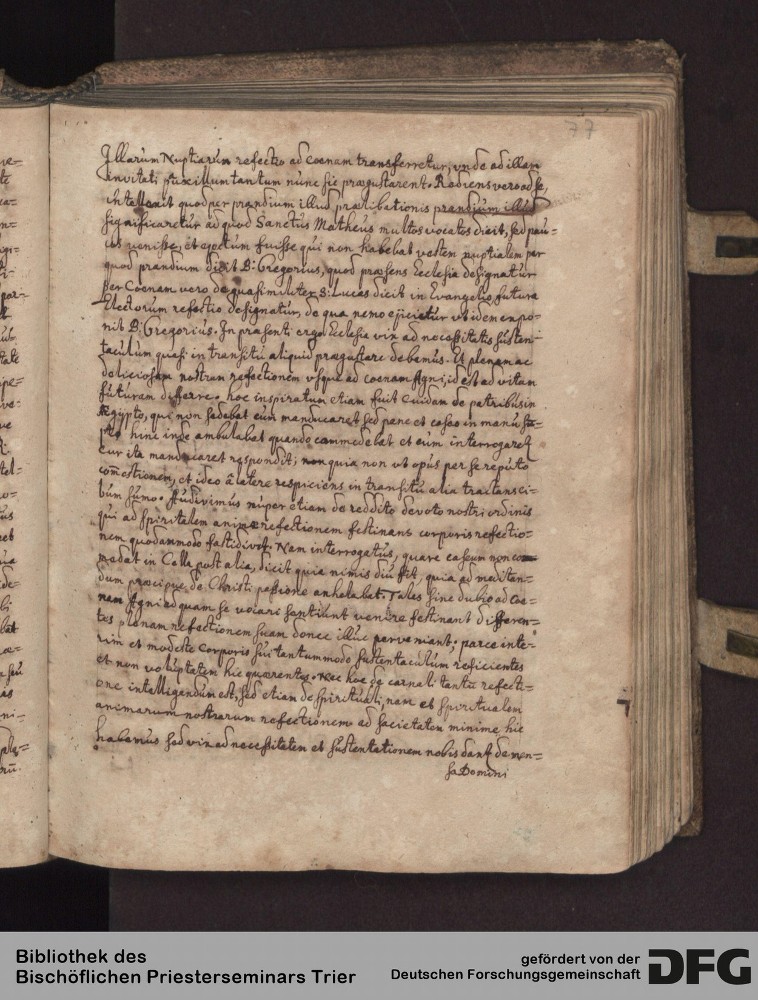 77
Illarum Nuptiarum refectio ad coenam transferretur, unde ad illam
invitati pauxillum tantum nunc hic praegustarent. Rediens vero ad se,
intellexit quod per prandium illud praelibationis prandium illud
significaretur ad quod Sanctus Matheus multos vocatos dicit, sed pau-
cos venisse, et ejectum fuisse qui non habebat vestem nuptialem per
quod prandium dicit B: Gregorius, quod praesens Ecclesia designatur
per Coenam vero de qua similiter S: Lucas dicit in Evangelio, futura
Electorum refectio designatur, de qua nemo ejicietur ut idem expo-
nit B: Gregorius. In praesenti ergo Ecclesia vix ad necessitatis susten-
taculum quasi in transitu aliquid praegustare debemus. Et plenam ac
deliciosam nostram refectionem usque ad coenam Agni, id est ad vitam
futuram differre. hoc inspiratum etiam fuit cuidam de patribus in
Aegypto, qui non sedebat cum manducaret sed pane et caseo in manu
hinc inde ambulabat quando commedebat et cum interrogaret
cur ita manducaret respondit; quia non ut opus per se reputo
comestionem, et ideo a latere respiciens in transitu alia tractans ci-
bum sumo. Audivimus nuper etiam de reddito devoto nostri ordinis
qui ad spiritalem animae refectionem festinans corporis refectio-
nem quodammodo fastidivit. Nam interrogatus, quare caseum non com-
medat in Cella post alia, dicit quia nimis diu sit, quia ad meditan-
dum praecipue de Christi passione anhelabat. Tales sine dubio ad coe-
nam Agni ad quam se vocari sentiunt venire festinant differen-
tes plenam refectionem suam donec illuc perveniant; parce inte-
rim et modeste corporis sui tantummodo sustentaculum reficientes
et non voluptatem hic quaerentes. Nec hoc de carnali tantu refecti-
one intelligendum est, sed etiam de spirituali, nam et spiritualem
animarum nostrarum refectionem ad societatem minime hic
habemus sed vix ad necessitatem et sustentationem nobis dant de men-
sa Domini
Bibliothek des
Bischöflichen Priesterseminars Trier
gefördert von der
Deutschen Forschungsgemeinschaft
DFG